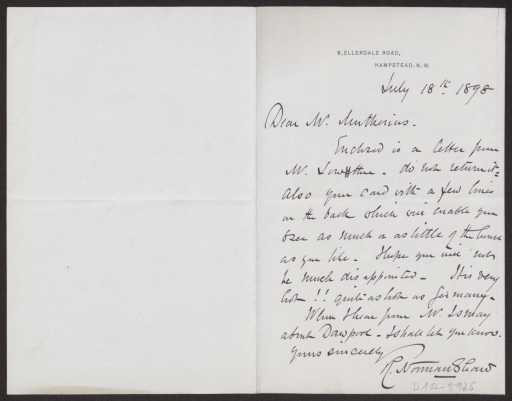 6, ELLERDALE ROAD,
HAMPSTEAD. N.W.
July 18th 1898
Dear Mr. Muthesius.
Enclosed is a letter from
Mr. – do not return it –
Also your card with a few lines
on the back which will enable you
to see as much or as little of the house
as you like – Hope you will not
be much disappointed – It is very
hot !! quite as hot as Germany –
When I hear from Mr. Ismay
about Dawpool – I shall let you know.
Yours sincerely
R. Norman Shaw
D 102-